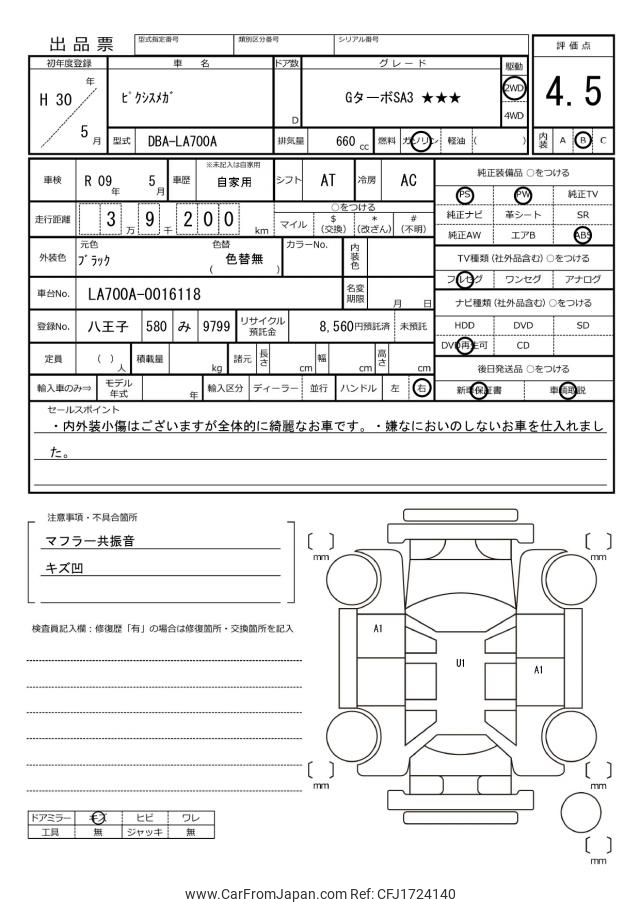 出品票
型式指定番号 類別区分番号 シリアル番号
評価点
4.5
初年度登録 車名 ドア数 グレード 駆動
H 30 年 5 月
ピクシスメガ
D
GターボSA3 ★★★
2WD
4WD
型式 DBA-LA700A 排気量 660 cc 燃料 ガソリン 軽油 ( )
内装 A B C
車検 R 09 年 5 月 車歴 ※未記入は自家用 自家用 シフト AT 冷房 AC
走行距離 3 万 9 千 2 0 0 km
○をつける
マイル $(交換) *(改ざん) #(不明)
外装色 元色 ブラック 色替 色替無 ( ) カラーNo. 内装色
車台No. LA700A-0016118 名変期限 月 日
登録No. 八王子 580 み 9799 リサイクル預託金 8,560円預託済 未預託
定員 ( ) 人 積載量 kg 諸元 長さ cm 幅 cm 高さ cm
輸入車のみ⇒ モデル年式 年 輸入区分 ディーラー 並行 ハンドル 左 右
純正装備品 ○をつける
PS PW 純正TV
純正ナビ 革シート SR
純正AW エアB ABS
TV種類(社外品含む) ○をつける
フルセグ ワンセグ アナログ
ナビ種類(社外品含む) ○をつける
HDD DVD SD
DVD再生可 CD
後日発送品 ○をつける
新車保証書 車輌取説
セールスポイント
・内外装小傷はございますが全体的に綺麗なお車です。・嫌なにおいのしないお車を仕入れまし
た。
注意事項・不具合箇所
マフラー共振音
キズ凹
検査員記入欄:修復歴「有」の場合は修復箇所・交換箇所を記入
〔 〕mm
〔 〕mm
A1
U1
A1
〔 〕mm
〔 〕mm
〔 〕mm
ドアミラー キズ ヒビ ワレ
工具 無 ジャッキ 無
www.CarFromJapan.com Ref: CFJ1724140